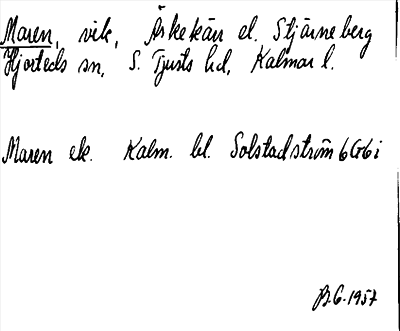 Maren, vik, Äskekärr el. Stjärneberg
Hjorteds sn, S. Tjusts hd, Kalmar l.
Maren ek. Kalm. bl. Solstadström 6G6i
B.G. 1957